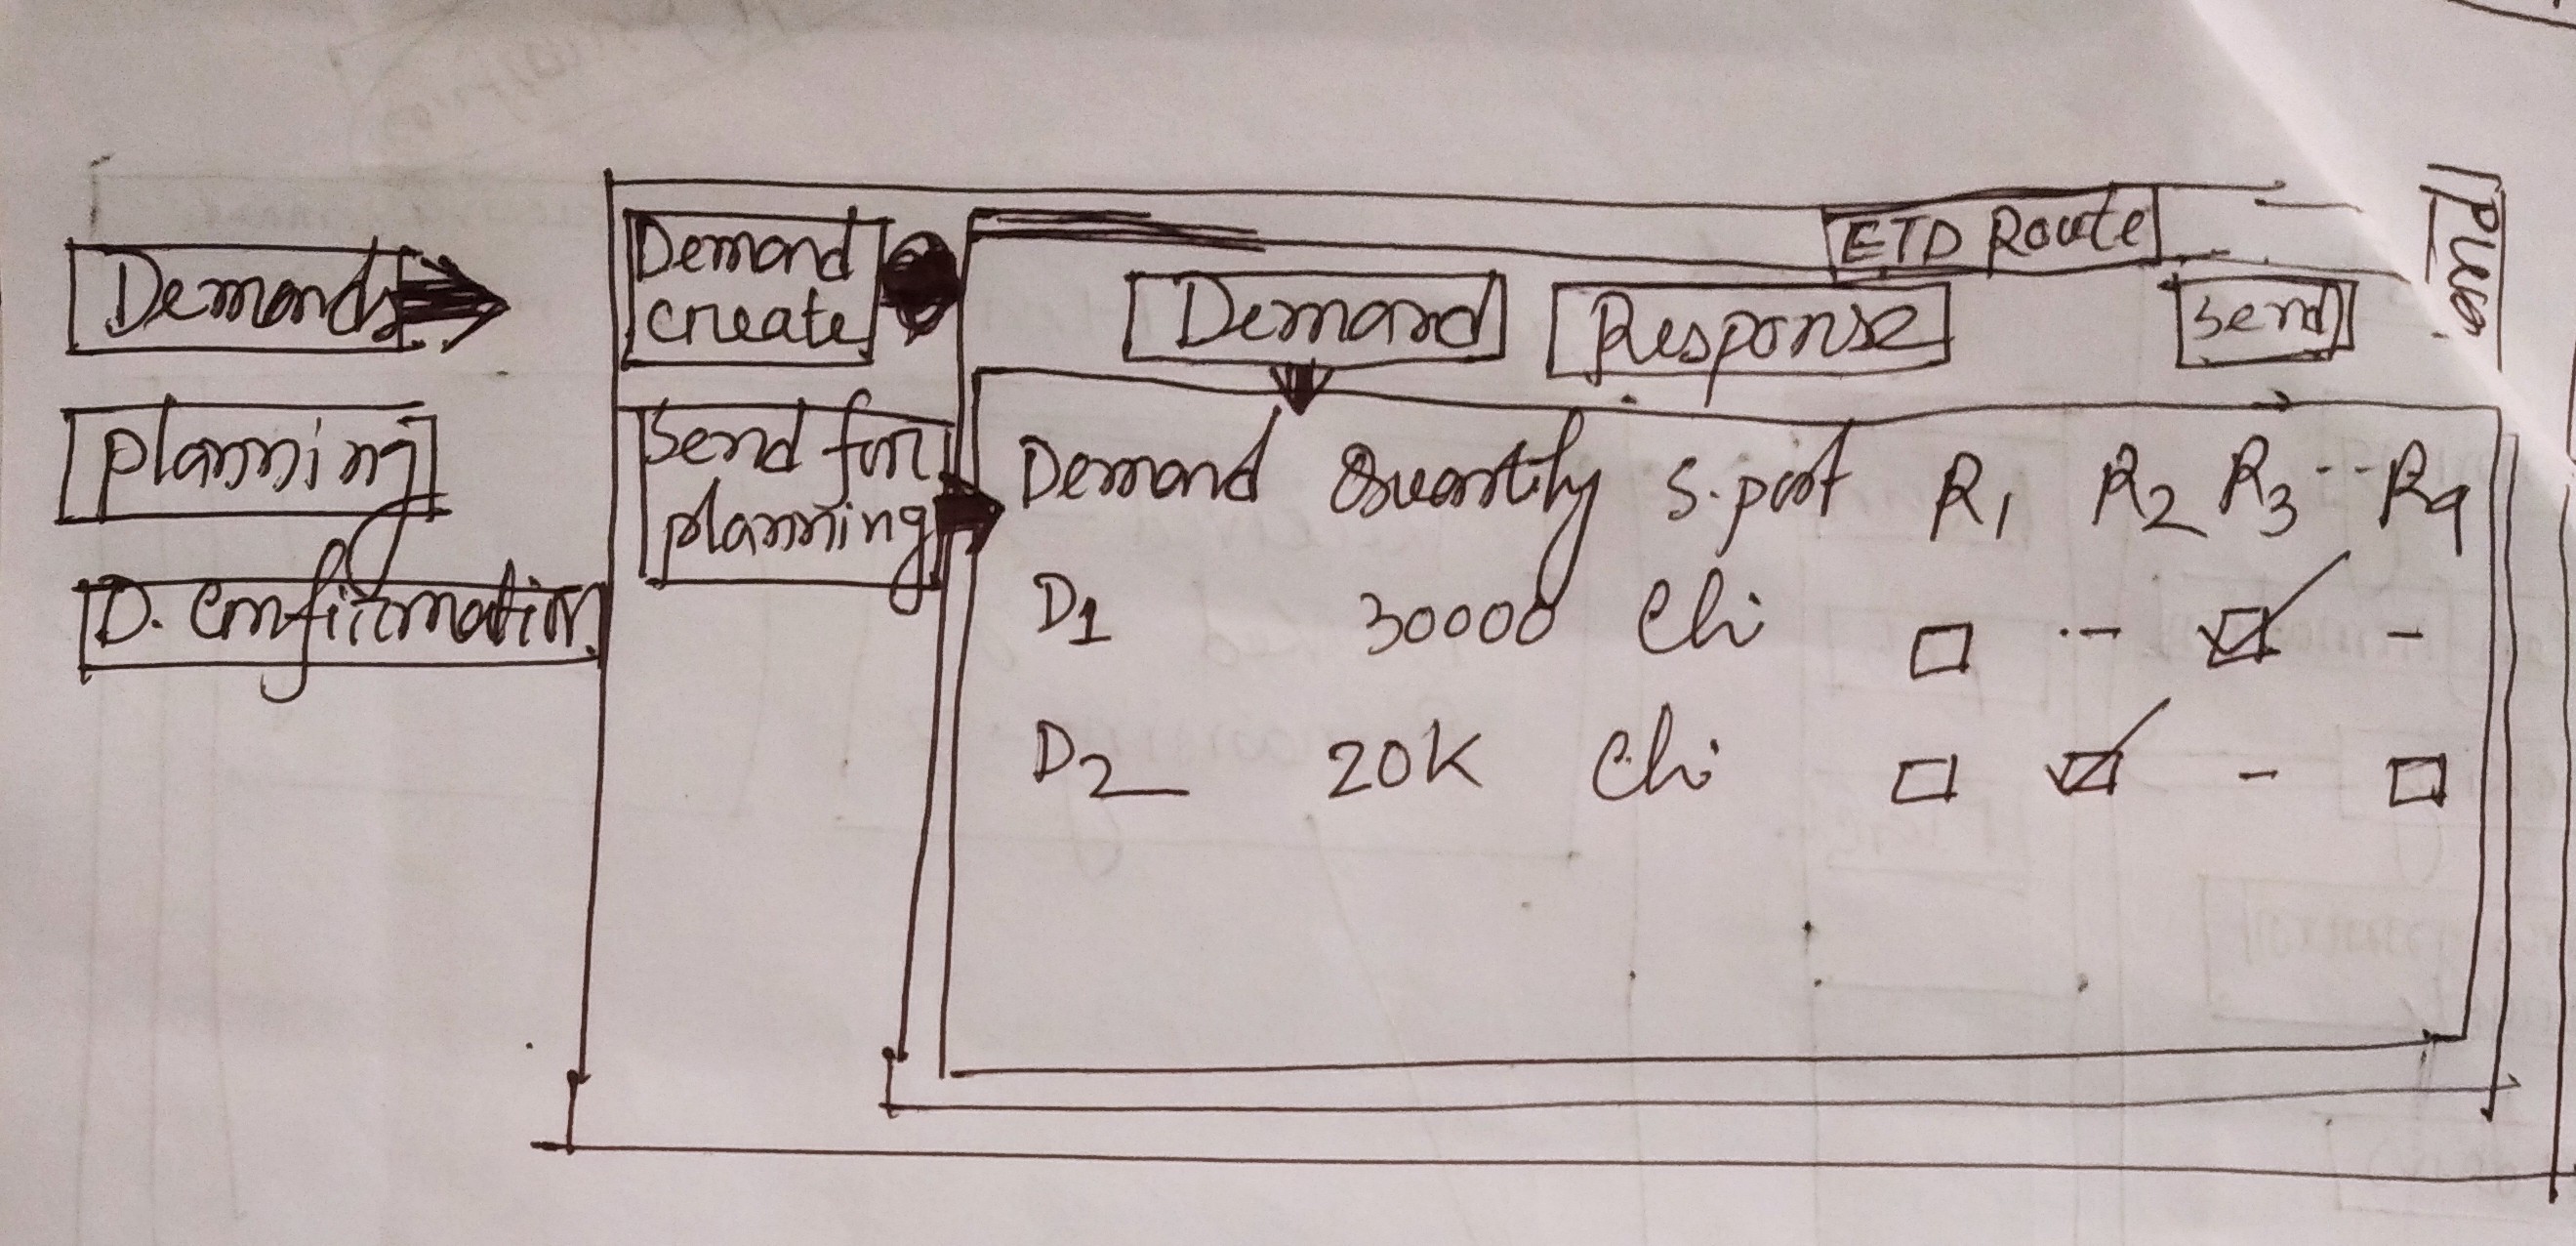 Demands
planning
D. Confirmation
Demand
create
Send for
planning
ETD Route
Demand Response Send
Demand Quantity S.port R1 R2 R3 -- R9
D1 30000 Chi -- -
D2 20K Chi -